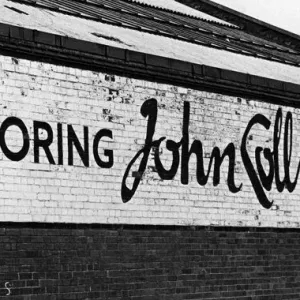 ORING John Coll